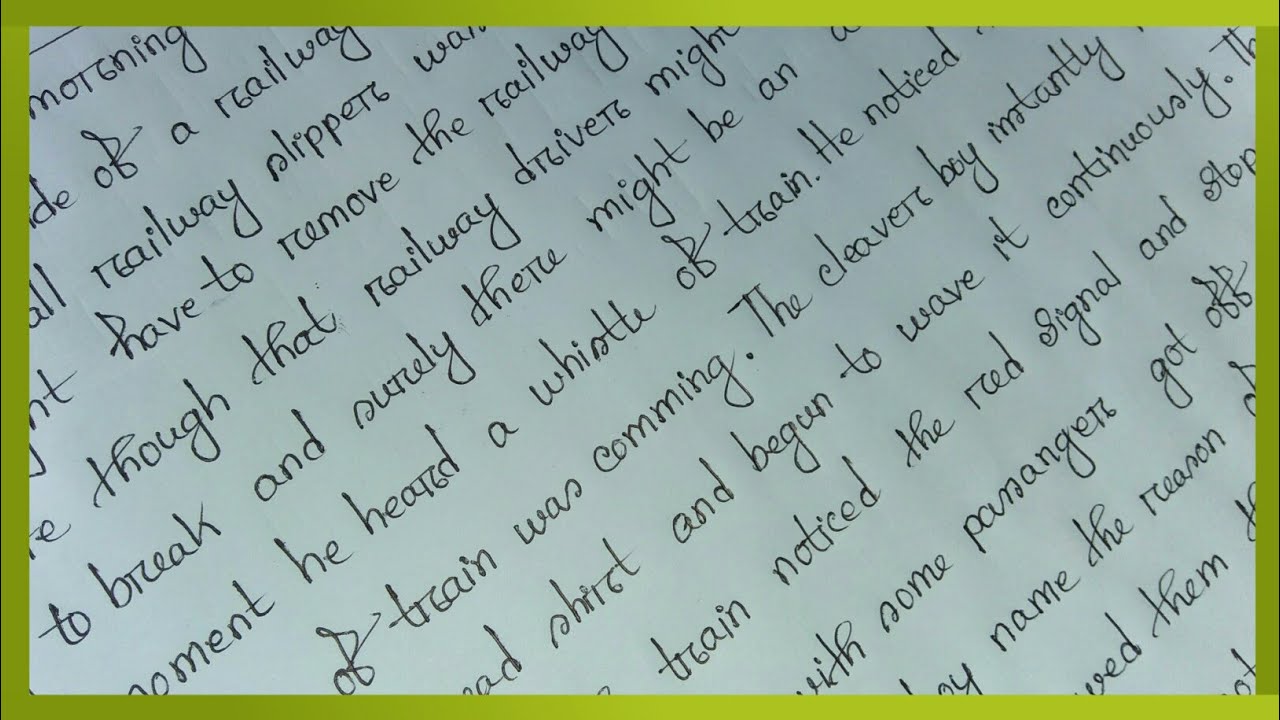 morning
of a railway
all railway slippers was
have to remove the railway
though that railway drivers might
to break and surely there might be an
he heard a whistle of train. He noticed
of train was comming. The cleavers boy instantly
shirt and begun to wave it continuously. Th
train noticed the red signal and stop
with some passanger got off
name the reason of
them